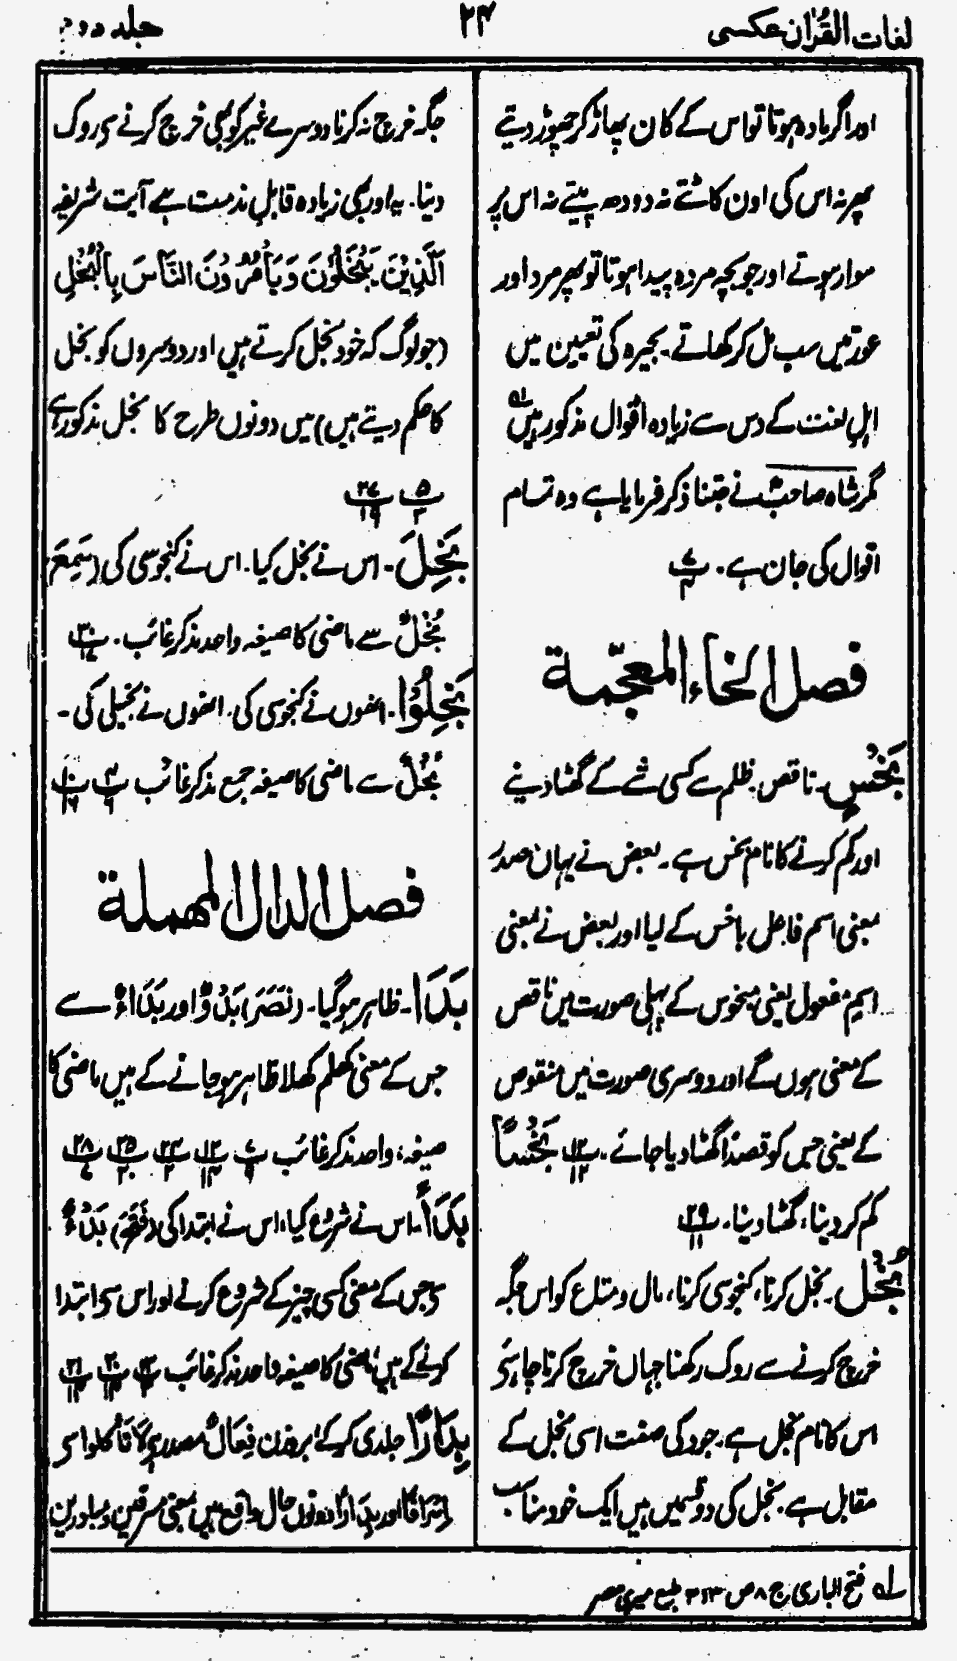 لغات القرآن عکسی
۲۴
جلد دوم
اور اگر مادہ ہوتا تو اس کے کان پھاڑ کر چھوڑ دیتے
پھر نہ اس کی اون کاٹتے نہ دودھ پیتے نہ اس پر
سوار ہوتے اور جو بچہ مردہ پیدا ہوتا تو پھر مرد اور
عورتیں سب مل کر کھاتے۔ بحیرہ کی تعیین میں
اہل لغت کے دس سے زیادہ اقوال مذکور ہیں لہ
مگر شاہ صاحبؒ نے جتنا ذکر فرمایا ہے وہ تمام
اقوال کی جان ہے۔ پ۷ ۴
فصل الخاء المعجمة
بَخْسٍ۔ ناقص۔ ظلم سے کسی شے کے گھٹا دینے
اور کم کرنے کا نام بخس ہے۔ بعض نے یہاں مصدر
بمعنی اسم فاعل باخس کے لیا اور بعض نے بمعنی
اسم مفعول یعنی مبخوس کے پہلی صورت میں ناقص
کے معنی ہوں گے اور دوسری صورت میں منقوص
کے یعنی جس کو قصدًا گھٹا دیا جائے۔ پ۱۲ ۱۲ بَخْسًا
کم کر دینا، گھٹا دینا۔ پ۲۹ ۱۱
بُخْل۔ بخل کرنا، کنجوسی کرنا، مال و متاع کو اس جگہ
خرچ کرنے سے روک رکھنا جہاں خرچ کرنا چاہئے
اس کا نام بخل ہے۔ جود کی صفت اسی بخل کے
مقابل ہے۔ بخل کی دو قسمیں ہیں ایک خود مناسب
جگہ خرچ نہ کرنا دوسرے غیر کو بھی خرچ کرنے سے روک
دینا۔ یہ اور بھی زیادہ قابلِ مذمت ہے آیت شریفہ
اَلَّذِیْنَ یَبْخَلُوْنَ وَیَاْمُرُوْنَ النَّاسَ بِالْبُخْلِ
(جو لوگ کہ خود بخل کرتے ہیں اور دوسروں کو بخل
کا حکم دیتے ہیں) میں دونوں طرح کا بخل مذکور ہے
پ۵ ۳ پ۲۷ ۱۹
بَخِلَ۔ اس نے بخل کیا۔ اس نے کنجوسی کی (سَمِعَ)
بُخْلٌ سے ماضی کا صیغہ واحد مذکر غائب۔ پ۳۰ ۱۷
بَخِلُوْا۔ انھوں نے کنجوسی کی۔ انھوں نے بخیلی کی۔
بُخْلٌ سے ماضی کا صیغہ جمع مذکر غائب پ۴ ۹ پ۱۰ ۱۶
فصل الدال المهملة
بَدَا۔ ظاہر ہو گیا۔ (نَصَرَ) بَدْوٌ اور بَدَاءٌ سے
جس کے معنی کھلم کھلا ظاہر ہو جانے کے ہیں ماضی کا
صیغہ، واحد مذکر غائب پ۷ ۹ پ۱۲ ۱۴ پ۲۴ ۲ پ۲۵ ۲۰ پ۲۸ ۷
بَدَأَ۔ اس نے شروع کیا، اس نے ابتدا کی (فَتَحَ) بَدْءٌ
سے جس کے معنی کسی چیز کے شروع کرنے اور اس سے ابتدا
کرنے کے ہیں ماضی کا صیغہ واحد مذکر غائب
بِدَارًا جلدی کر کے، بروزن فِعَالٌ مصدر ہے لَا تَأْكُلُوْا سے
اِسْرَافًا اور بِدَارًا دونوں حال واقع ہیں بمعنی مسرفین و مبادرین
لہ فتح الباری ج ۸ ص ۲۱۳ طبع میریہ مصر